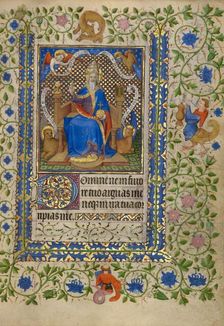 Domine ne in furo
re tuo arguas me
neq; in ira tua cor
ripias me